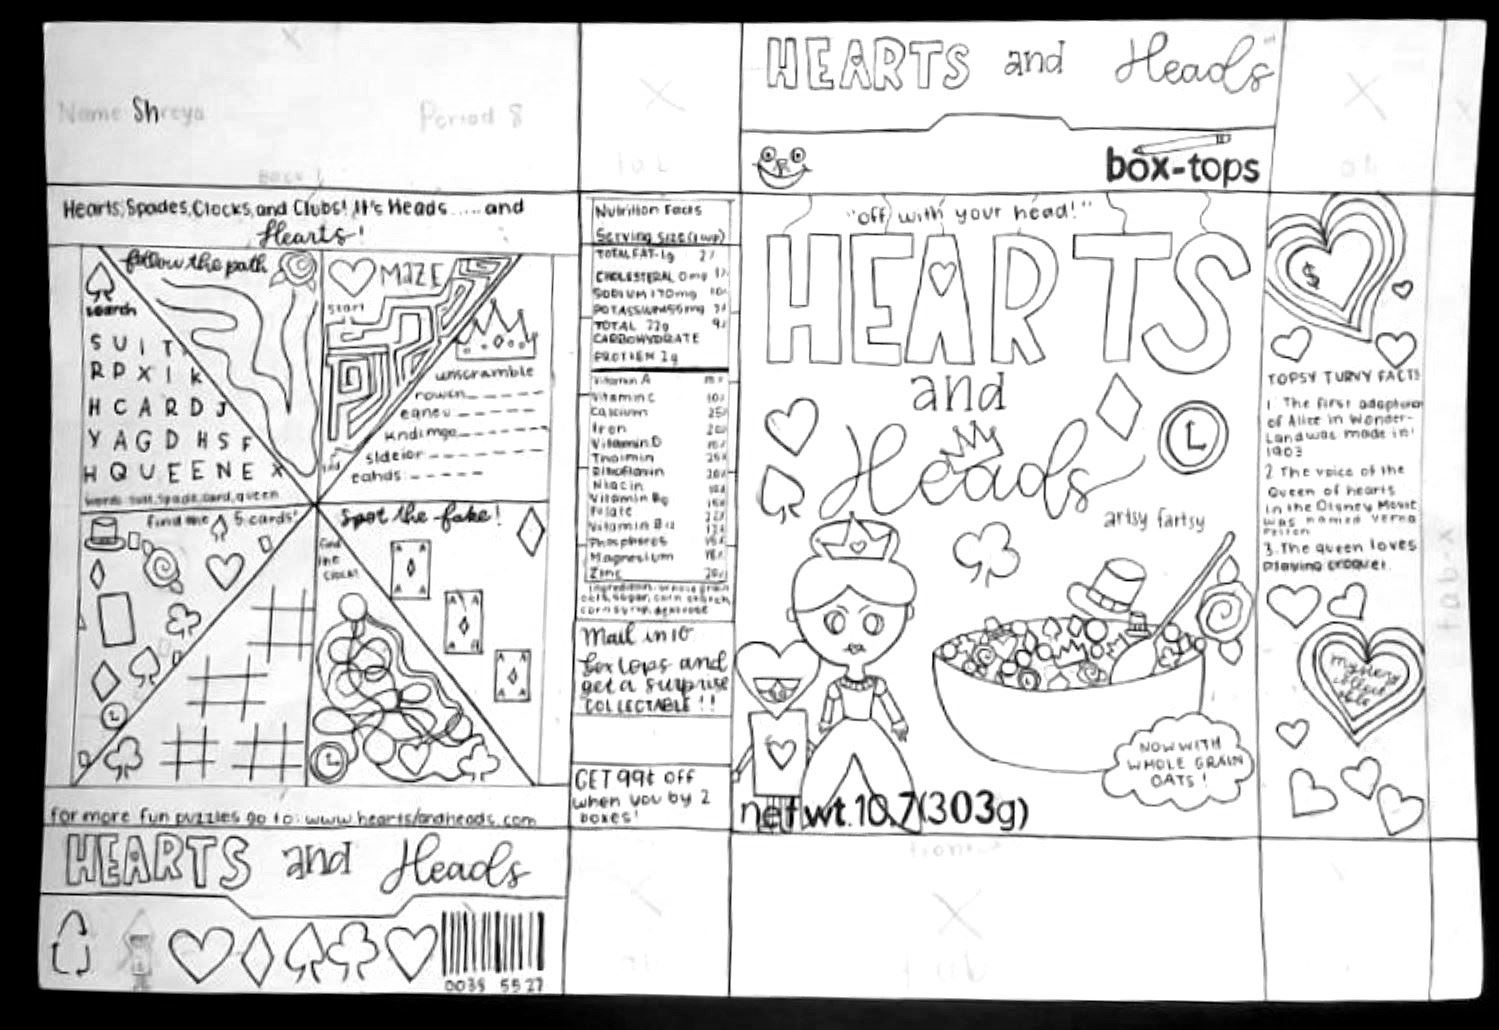 Name Shreya
Period 8
Back
Hearts, Spades, Clocks, and Clubs! It's Heads ..... and
Hearts!
search
S U I T
R P X I K
H C A R D J
Y A G D H S F
H Q U E E N E X
words: suit, spade, card, queen
follow the path
MAZE
start
end
unscramble
rowcn_ _ _ _ _
eqneu_ _ _ _ _
kndimgo_ _ _ _ _ _ _
sldeior_ _ _ _ _ _ _
eahds: _ _ _ _ _
find me 5 cards!
Spot the fake!
find
the
clock!
A A
A A
A A
A A
A A
A A
for more fun puzzles go to: www.hearts/andheads.com
HEARTS and Heads
0039 5527
tab
Nutrition Facts
Serving Size (1 cup)
TOTAL FAT-1g 2%
CHOLESTERAL 0mg
SODIUM 170mg
POTASSIUM 55mg
TOTAL 22g
CARBOHYDRATE
PROTIEN 2g
Vitamin A
Vitamin C 10%
Calcium 25%
Iron
Vitamin D
Thaimin
Riboflavin
Niacin
Vitamin B6
Folate
Vitamin B12
Phosphores
Magnesium
Zinc
Ingredients: whole grain
oats, sugar, corn starch,
corn syrup, dextrose
Mail in 10
box tops and
get a surprise
COLLECTABLE!!
GET 99¢ off
when you by 2
boxes!
HEARTS and Heads
box-tops
"off with your head!"
HEARTS
and
Heads
artsy fartsy
NOW WITH
WHOLE GRAIN
OATS!
net wt. 10.7 (303g)
front
tab
$
TOPSY TURVY FACTS
1 The first adaptation
of Alice in Wonder-
Land was made in
1903
2 The voice of the
Queen of hearts
in the Disney Movie
was named Verna
Felton
3. The queen loves
playing croquet
mystery
collect
able
tab-x